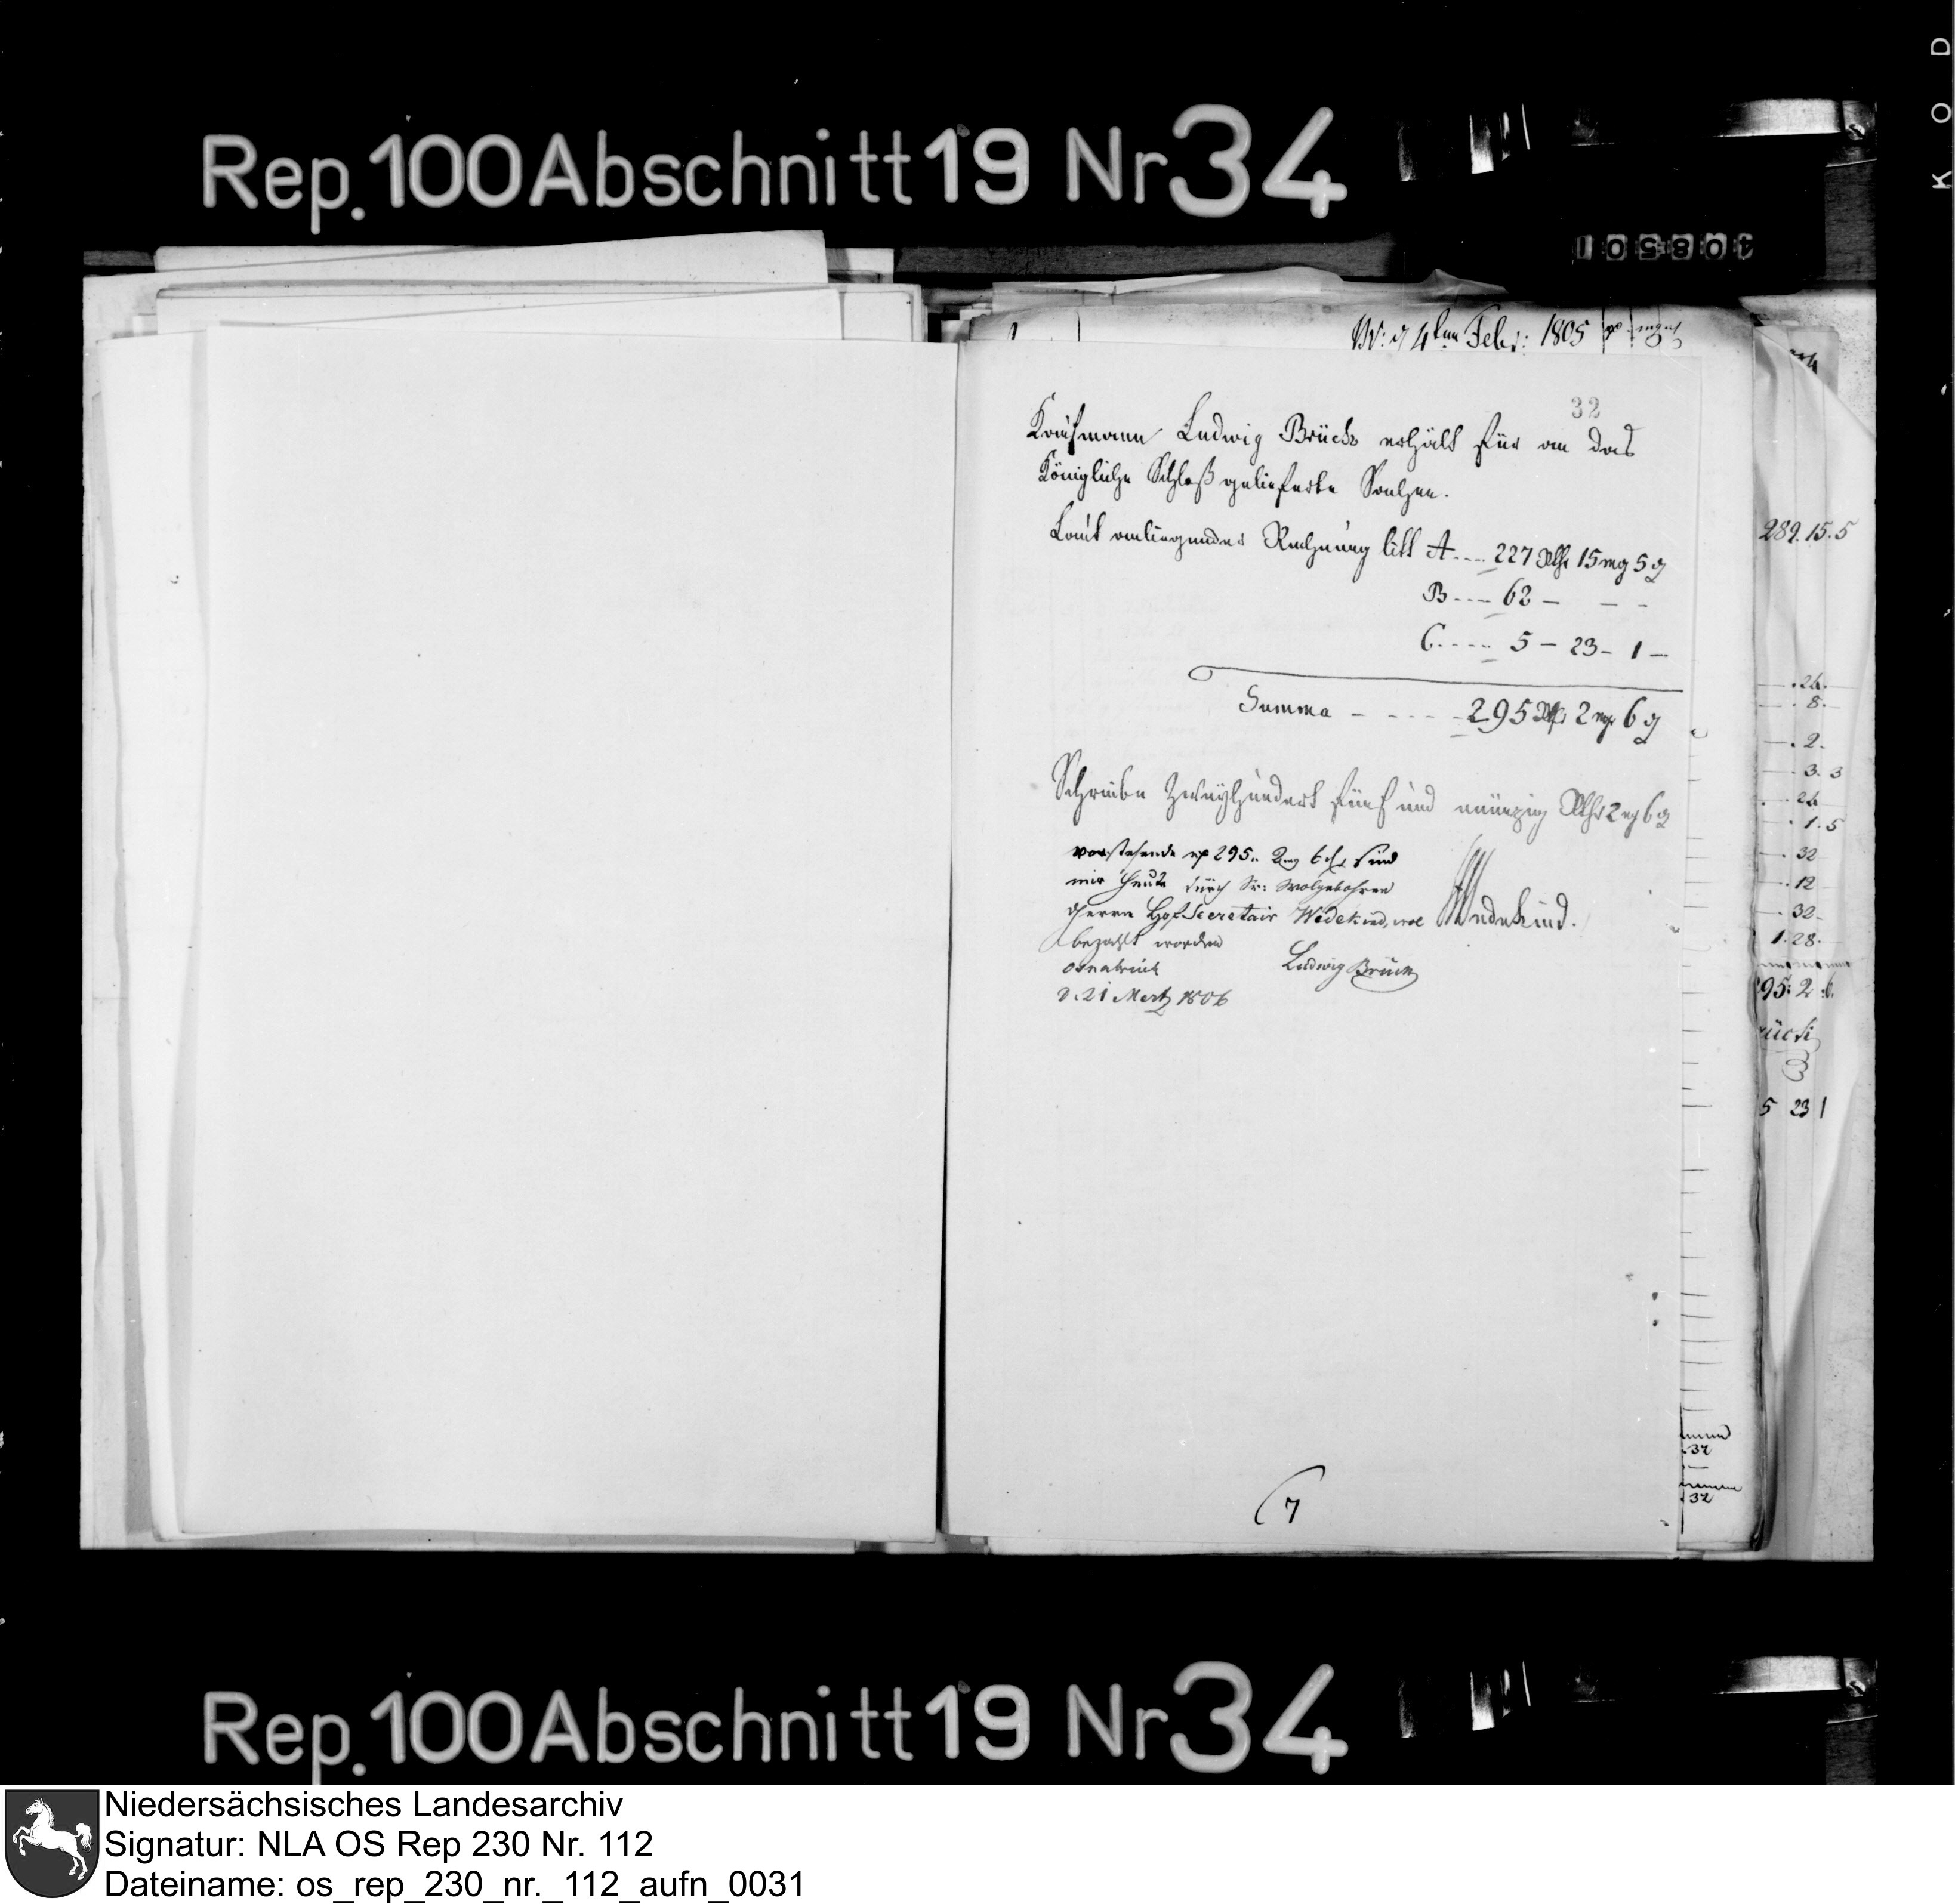 Rep. 100 Abschnitt 19 Nr 34
KOD
105804
4ten Feb: 1805
32
Kaufmann Ludwig Brück erhält für an das
Königliche Schloß gelieferte Sachen.
Laut anliegender Rechnung litt A.... 227 Rthr 15 mg 5 ₰
B.... 62 — — —
C.... 5 — 23 — 1 —
Summa - - - - - 295 Rthr 2 mgr 6 ₰
Schreibe Zweyhundert fünf und neünzig Rthr 2 mg 6 ₰
vorstehende 295.. 2 mg 6 sind
mir heute durch Sr: Wolgebohren
Herrn Hof Secretair Wedekind
Wedekind.
bezahlt worden
Osnabrück
Ludwig Brück
d. 21 Mertz 1806
7
289.15.5
.24.
. 8.
. 2.
. 3. 3
. 24
. 1. 5
. 32
. 12
. 32
1. 28.
95: 2
5 23 1
32
32
Rep. 100 Abschnitt 19 Nr 34
Niedersächsisches Landesarchiv
Signatur: NLA OS Rep 230 Nr. 112
Dateiname: os_rep_230_nr._112_aufn_0031